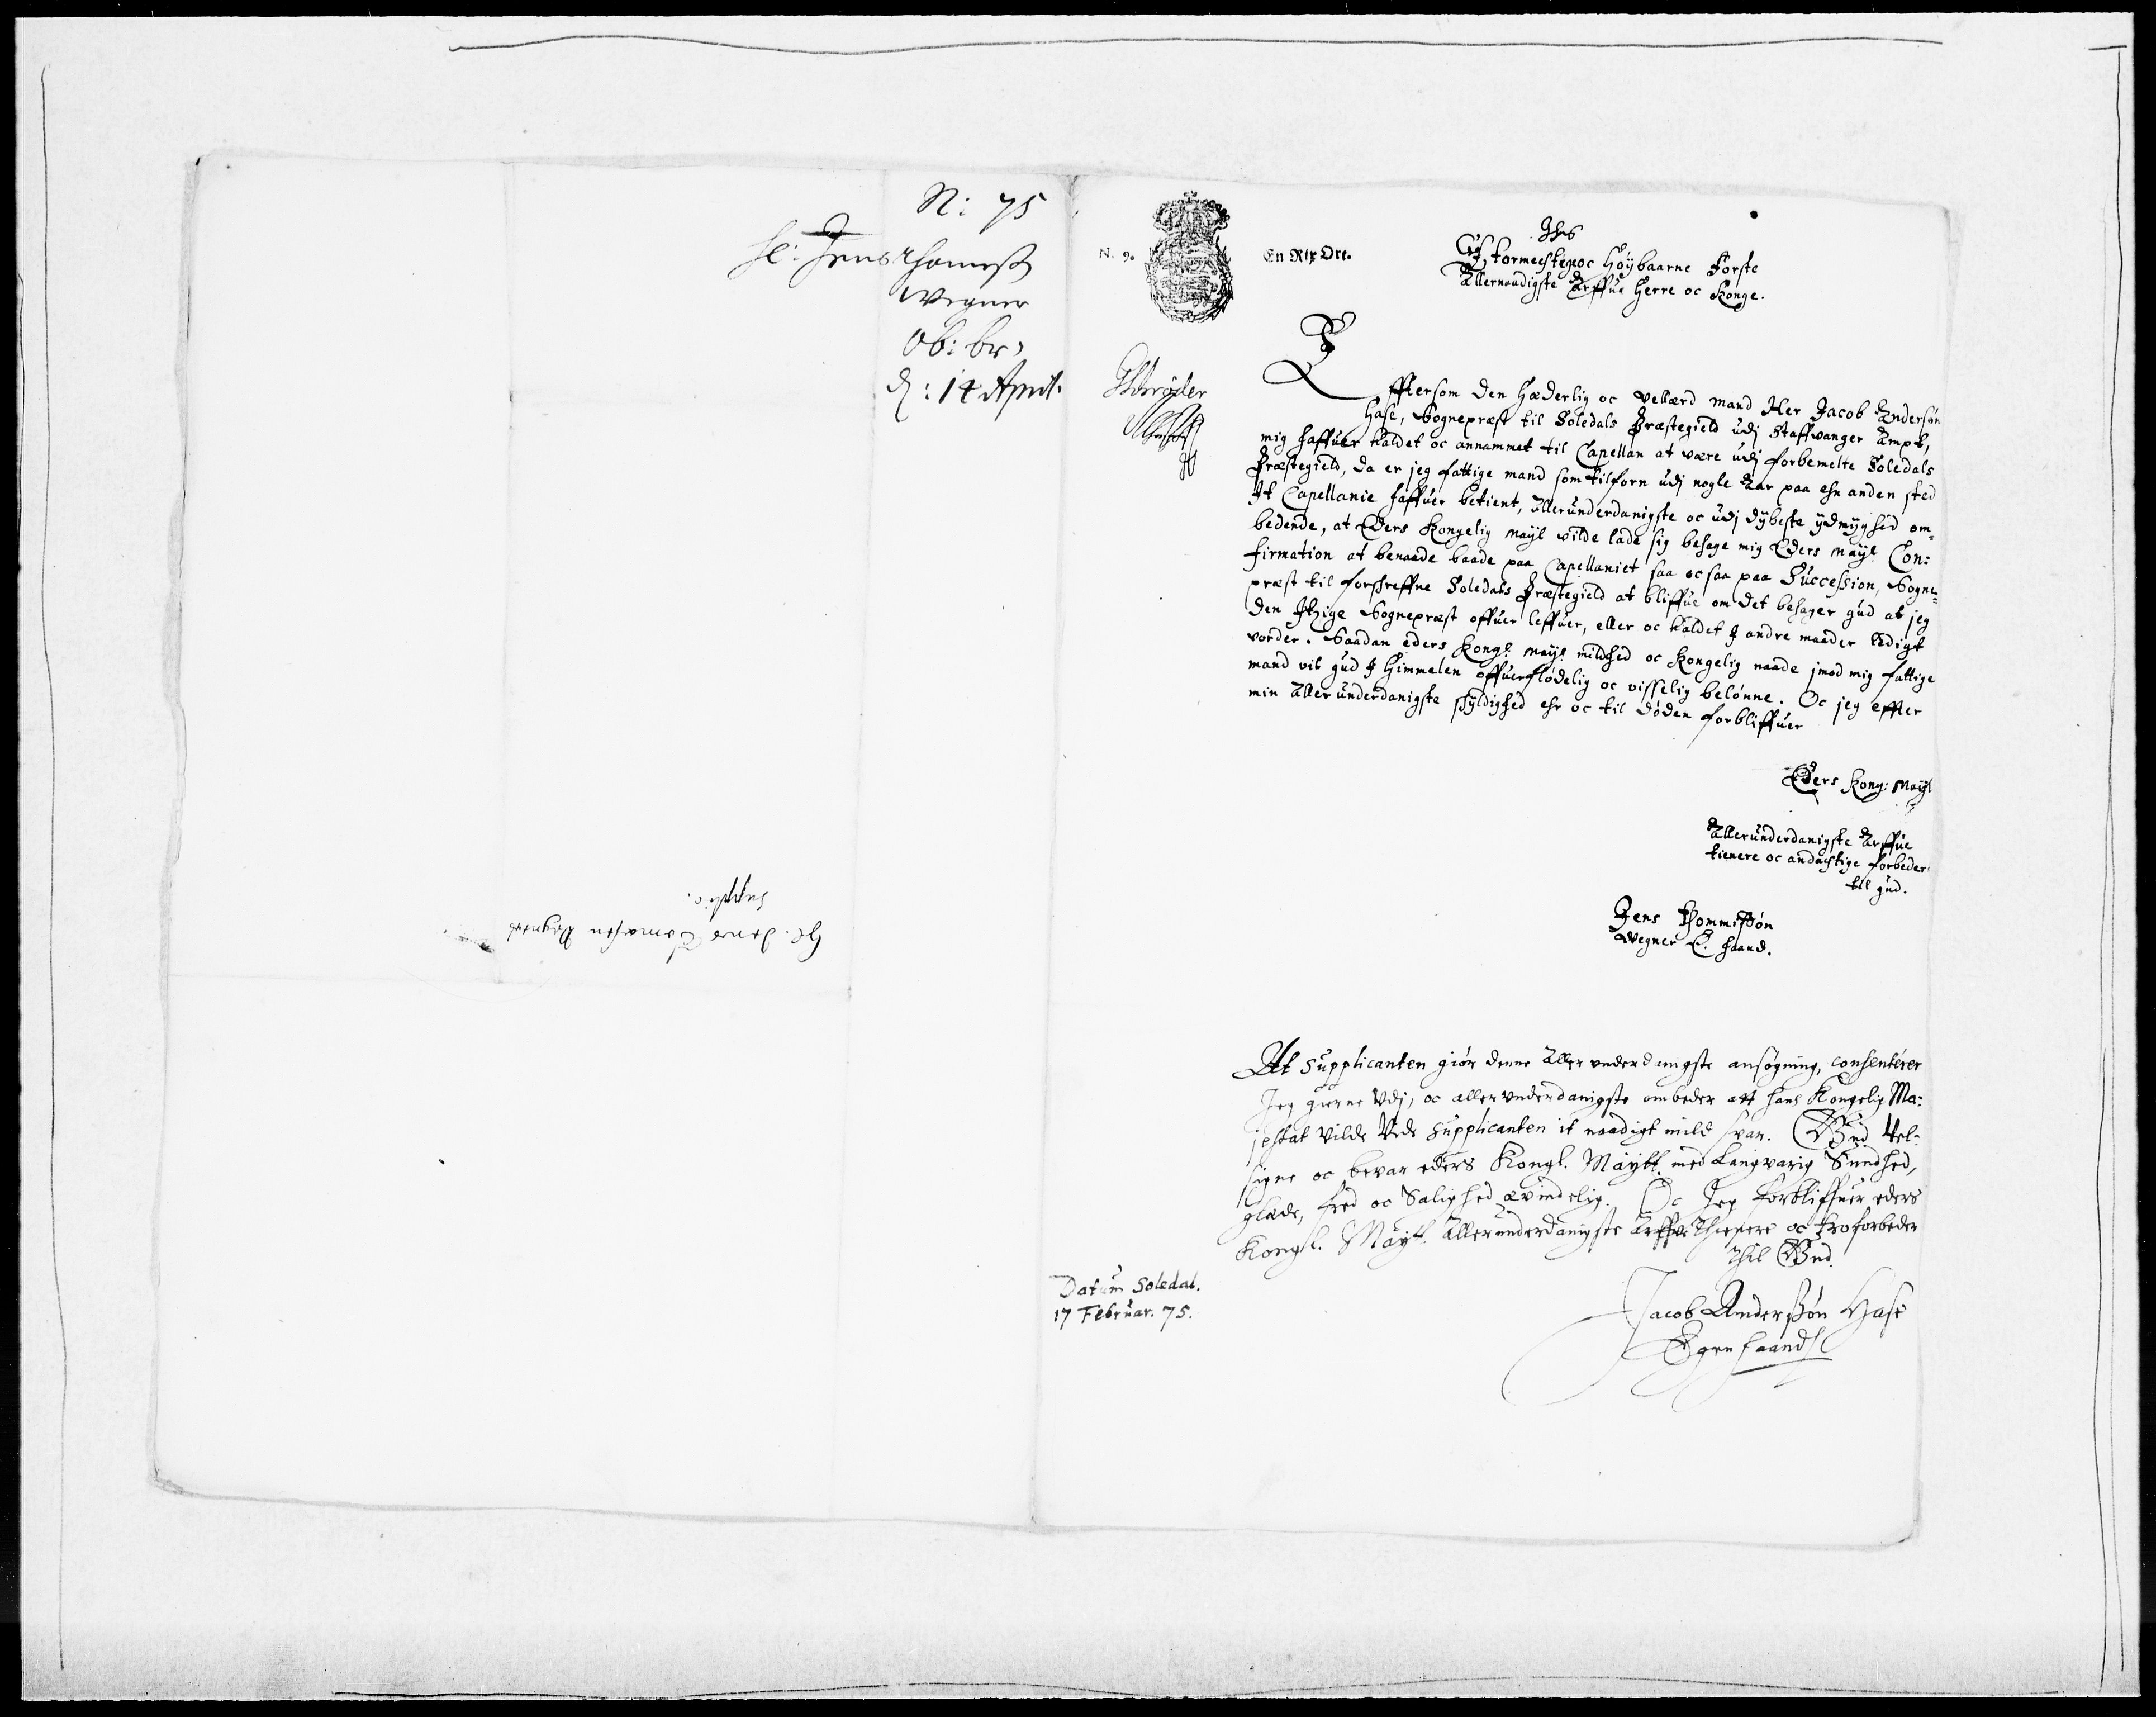 N: 75
hr: Jens Thommesß
Wegner
Ob: br:
d: 14 April.
Hr. Jens Tomasen Vegners
supplic.
N. 9.
En Rix Dlr.
Jhs
Stormectigeoc Höybaarne Förste
Allernaadigste Arffue Herre oc Konge.
Schröder
Effttersom den Hæderlig oc vellærd mand Her Jacob Andersøn
Hase, Sognepræst til Soledals Præstegield udj Staffvanger Ampt,
mig haffuer kaldet oc annammet til Capellan at være udj forbemelte Soledals
Præstegield, da er jeg fattige mand som tilforn udj nogle Aar paa ehn anden sted
It Capellanie haffuer betient, allerunderdanigste oc udj dybeste ydmyghed om=
bedende, at Eders Kongelig Mayt vilde lade sig behage mig Eders Mayt Con=
firmation at benaade baade paa Capellaniet saa ocsaa paa Succession, Sogne=
præst til forschreffne Soledals Præstegield at bliffue om det behager gud at jeg
den Itzige Sognepræst offuer leffuer, eller oc kaldet I andre maader ledigt
vorder. Saadan eders Kongl. Mayt. mildhed oc Kongelig naade jmod mig fattige
mand vil gud I Himmelen offuerflödelig oc visselig belönne. Oc jeg effter
min allerunderdanigste skyldighed ehr oc til döden forbliffuer
Eders Kong: Mayt
Allerunderdanigste Arffue
tienere oc andæchtige forbeder
til gud.
Jens Thommisßøn
Wegner E. haand.
At Supplicanten giör denne allerunderdanigste ansøgning, consenterer
Jeg gierne Udj, oc allerunderdanigste ombeder att hans Kongelig Ma=
jestat vilde Vede Supplicanten it naadigt mild svar. Gud Vel=
signe oc bevar eders Kongl. Maytt. med Langvarig Sundhed,
glæde, fred oc Salighed ævindelig. Oc Jeg forbliffuer eders
Kongl. Mayt. allerunderdanigste Arffve Thienere oc troforbeder
Thil Gud.
Datum Soledal.
17 Februar. 75.
Jacob Anderßön Hase
Egen haand